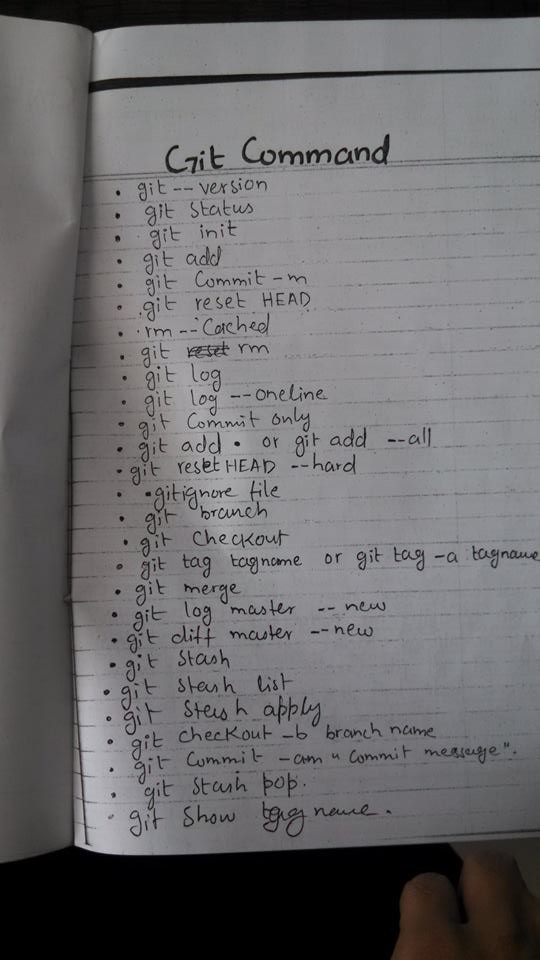 Git Command
• git -- version
• git status
• git init
• git add
• git Commit -m
• git reset HEAD
• rm -- Cached
• git rm
• git log
• git log -- oneline
• git Commit only
• git add • or git add --all
• git reset HEAD --hard
• •gitignore file
• git branch
• git checkout
• git tag tagname or git tag -a tagname
• git merge
• git log master -- new
• git diff master -- new
• git Stash
• git Stash list
• git Stash apply
• git checkout -b branch name
• git Commit -am "Commit message".
• git Stash pop.
• git Show tag name.